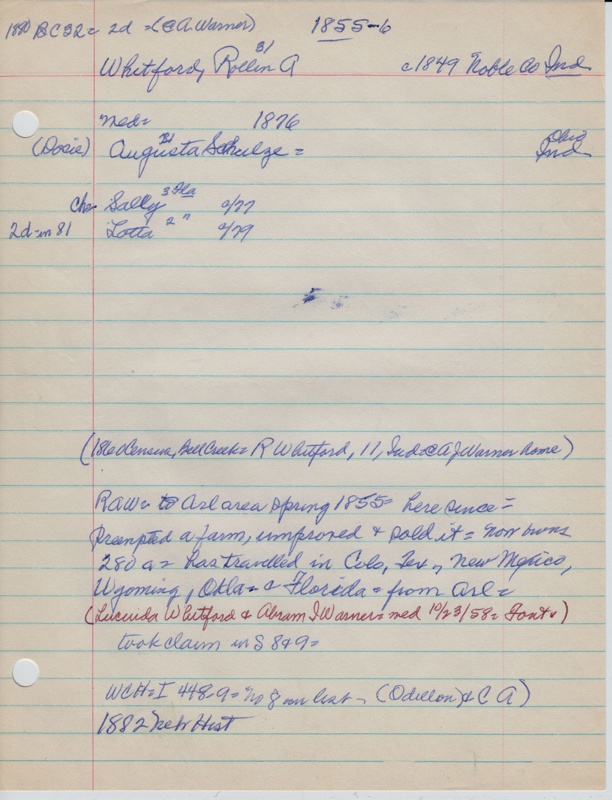 1880 BC 32= 2d =(CA Warner) 1855-6
31
Whitford, Rollin A c1849 Noble Co Ind
Med= 1876 Ohio
(Dosie) Augusta Schulze = Ind
Che Sally 3 Fla c/77
2d-in 81 Lotta 2 " c/79
(1860 Census, Bell Creek = R Whitford, 11, Ind = C A J Warner home)
RAW = to Arl area spring 1855 = here since =
Preempted a farm, improved & sold it = now owns
280 a = has travelled in Colo, Tex, New Mexico,
Wyoming, Okla = & Florida = from Arl =
(Lucinda Whitford & Abram J Warner = med 10/23/58 = Font)
took claim in S 8 & 9 =
WCH = I 448-9 = no 8 on list - (Odillon) & C A)
1882 Nebr Hist